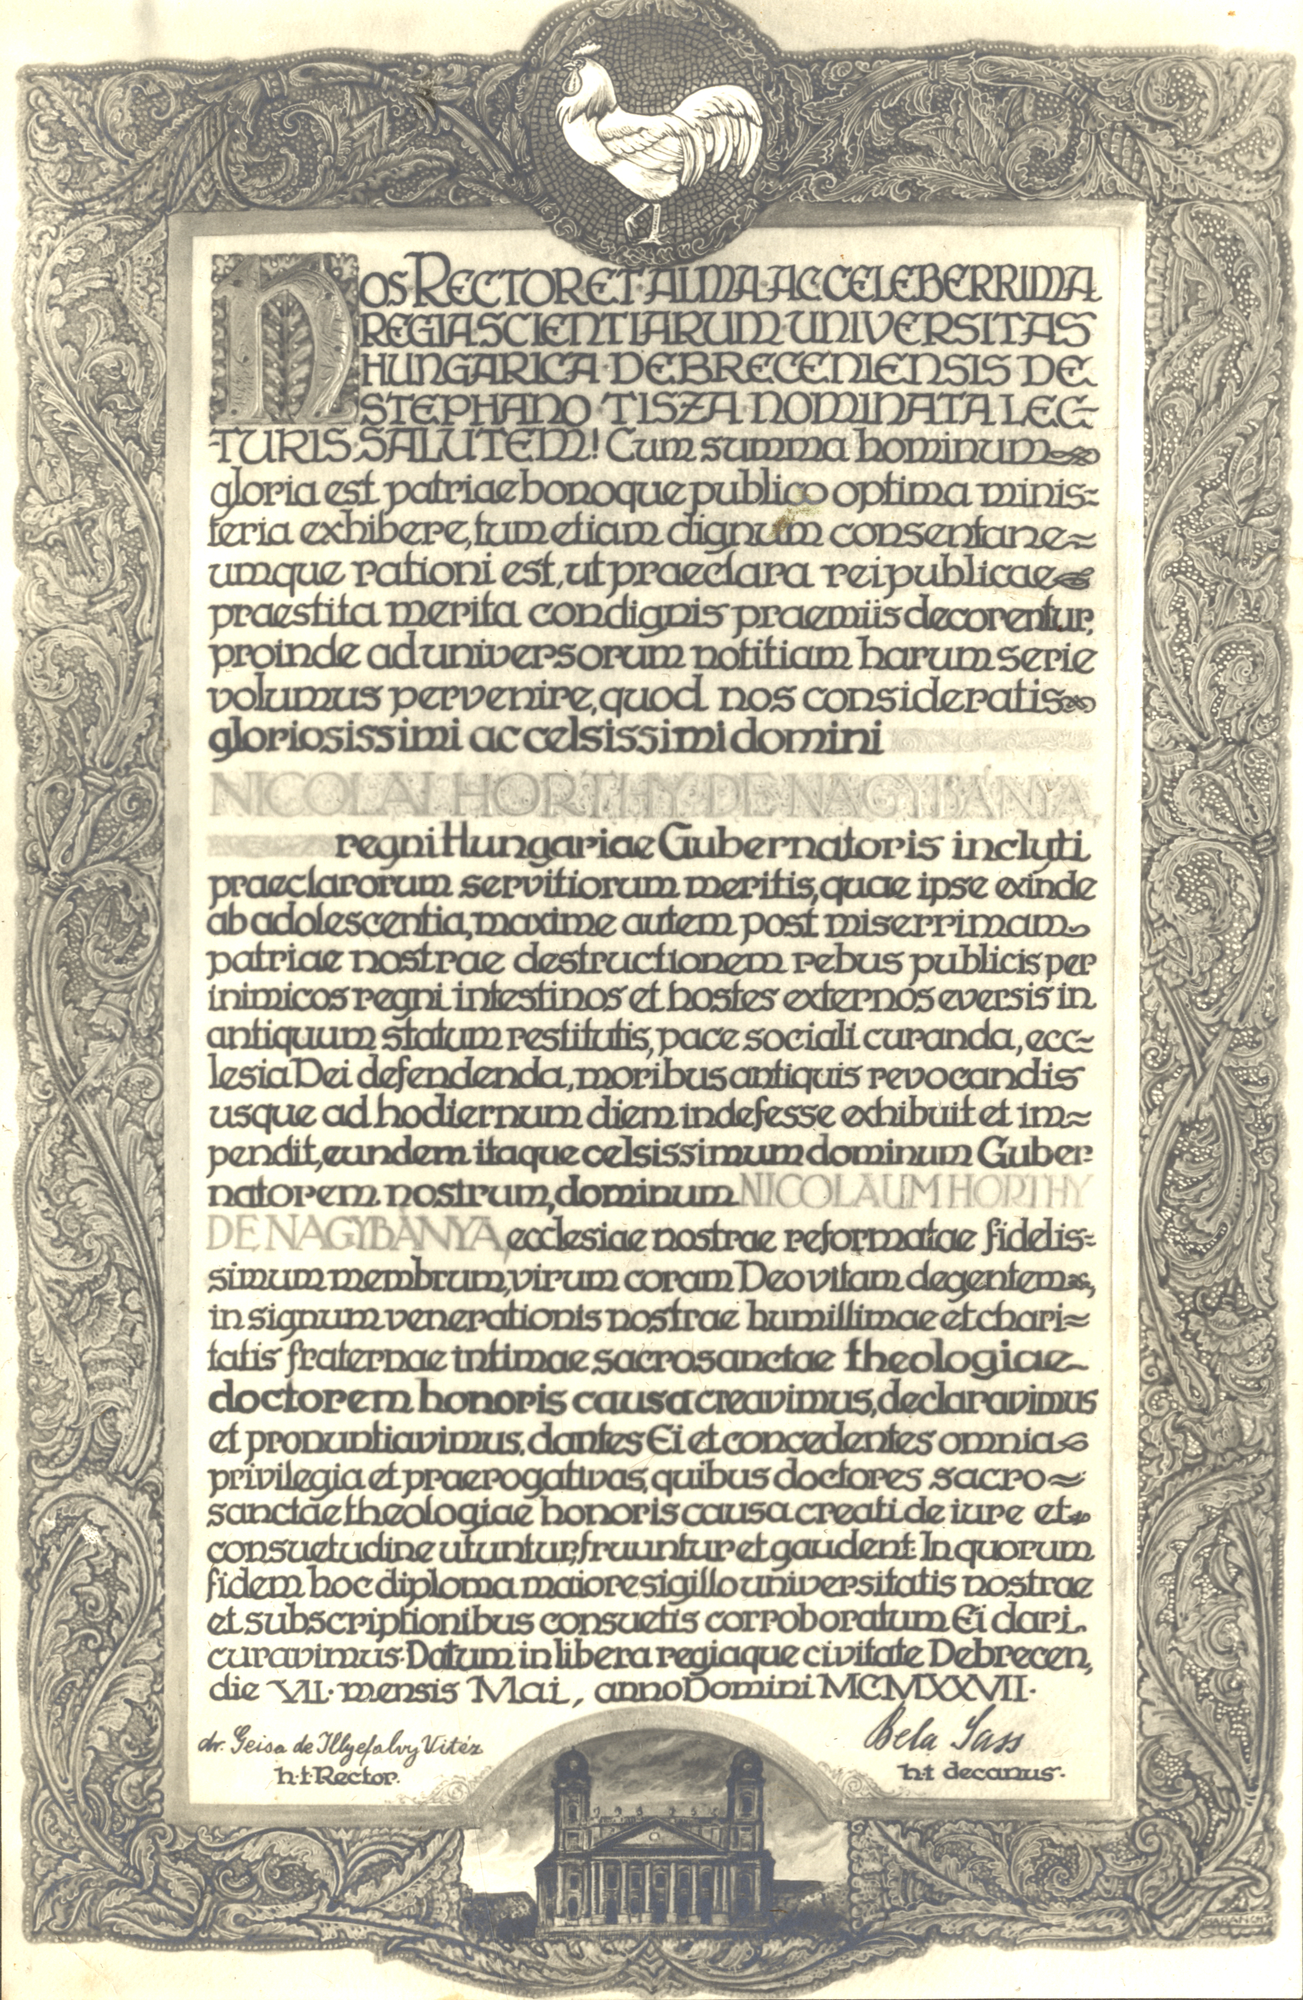 NOS RECTOR ET ALMA AC CELEBERRIMA
REGIA SCIENTIARUM UNIVERSITAS
HUNGARICA DEBRECENIENSIS DE
STEPHANO TISZA NOMINATA LEC-
TURIS SALUTEM! Cum summa hominum
gloria est patriae bonoque publico optima minis-
teria exhibere, tum etiam dignum consentane-
umque rationi est, ut praeclara reipublicae
praestita merita condignis praemiis decorentur,
proinde ad universorum notitiam harum serie
volumus pervenire, quod nos consideratis
gloriosissimi ac celsissimi domini
NICOLAI HORTHY DE NAGYBÁNYA,
regni Hungariae Gubernatoris inclyti
praeclarorum servitiorum meritis, quae ipse exinde
ab adolescentia, maxime autem post miserrimam
patriae nostrae destructionem rebus publicis per
inimicos regni intestinos et hostes externos eversis in
antiquum statum restitutis, pace sociali curanda, ecc-
lesia Dei defendenda, moribus antiquis revocandis
usque ad hodiernum diem indefesse exhibuit et im-
pendit, eundem itaque celsissimum dominum Guber-
natorem nostrum, dominum NICOLAUM HORTHY
DE NAGYBÁNYA, ecclesiae nostrae reformatae fidelis-
simum membrum, virum coram Deo vitam degentem,
in signum venerationis nostrae humillimae et chari-
tatis fraternae intimae sacrosanctae theologiae
doctorem honoris causa creavimus, declaravimus
et pronuntiavimus, dantes Ei et concedentes omnia
privilegia et praerogativas, quibus doctores sacro-
sanctae theologiae honoris causa creati de iure et
consuetudine utuntur, fruuntur et gaudent. In quorum
fidem hoc diploma maiore sigillo universitatis nostrae
et subscriptionibus consuetis corroboratum Ei dari
curavimus. Datum in libera regiaque civitate Debrecen,
die VII. mensis Mai, anno Domini MCMXXVII.
dr. Geisa de Illyefalvy Vitéz
h.t. Rector.
Bela Sass
h.t decanus.